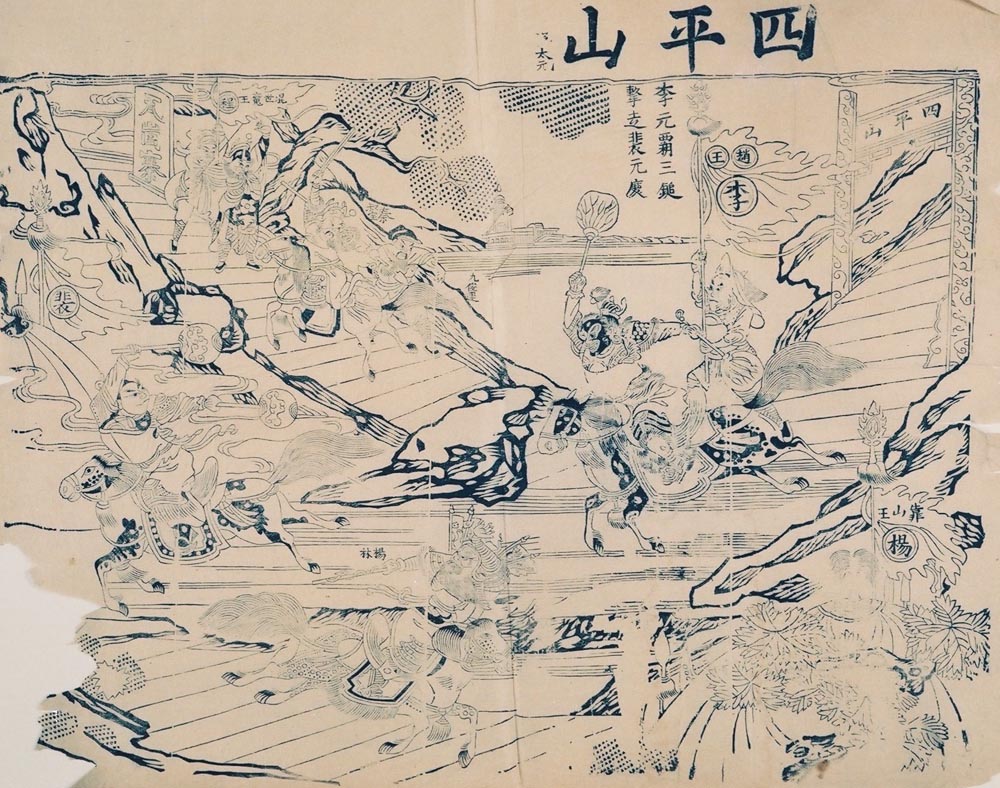 四平山
李元霸三鎚
擊走裴元慶
趙王
李
四平山
混世魔王
程
瓦崗寨
秦
裴
楊林
靠山王
楊